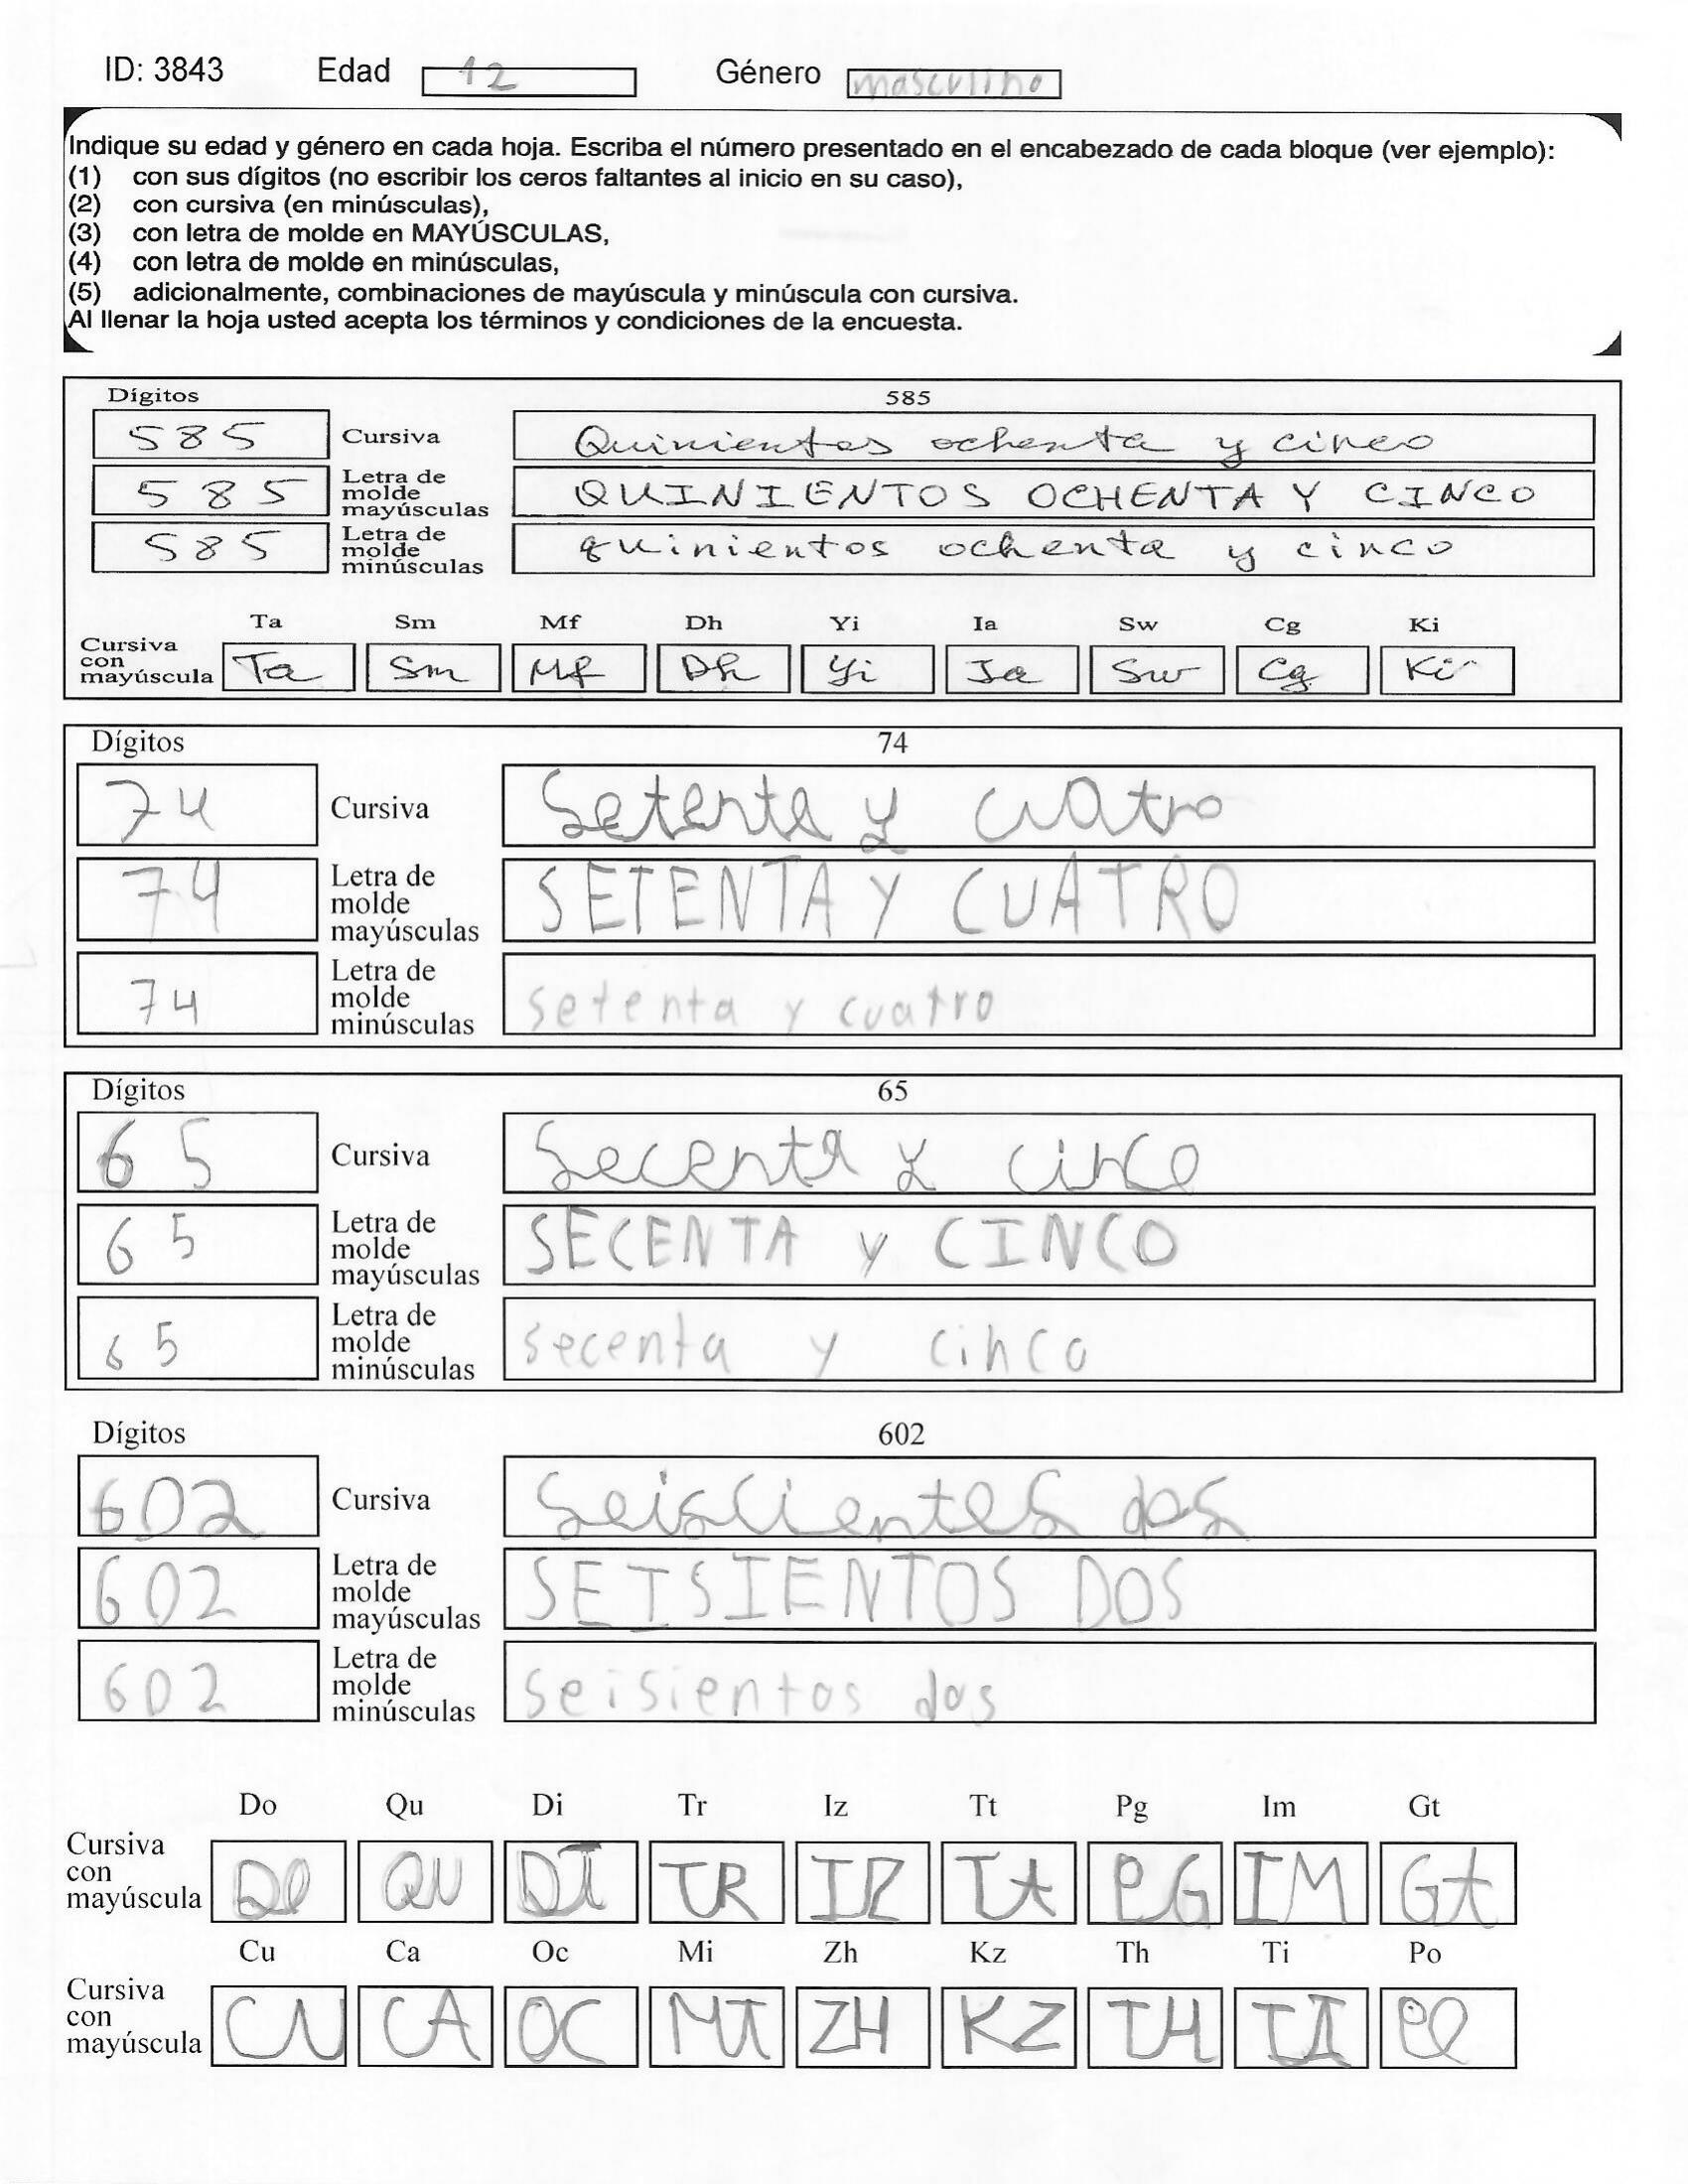 ID: 3843 Edad 12 Género masculino
Indique su edad y género en cada hoja. Escriba el número presentado en el encabezado de cada bloque (ver ejemplo):
(1) con sus dígitos (no escribir los ceros faltantes al inicio en su caso),
(2) con cursiva (en minúsculas),
(3) con letra de molde en MAYÚSCULAS,
(4) con letra de molde en minúsculas,
(5) adicionalmente, combinaciones de mayúscula y minúscula con cursiva.
Al llenar la hoja usted acepta los términos y condiciones de la encuesta.
Dígitos 585
585 Cursiva Quinientos ochenta y cinco
585 Letra de molde mayúsculas QUINIENTOS OCHENTA Y CINCO
585 Letra de molde minúsculas quinientos ochenta y cinco
Ta Sm Mf Dh Yi Ia Sw Cg Ki
Cursiva con mayúscula Ta Sm Mf Dh Yi Ia Sw Cg Ki
Dígitos 74
74 Cursiva Setenta y cuatro
74 Letra de molde mayúsculas SETENTA Y CUATRO
74 Letra de molde minúsculas setenta y cuatro
Dígitos 65
65 Cursiva Secenta y cinco
65 Letra de molde mayúsculas SECENTA y CINCO
65 Letra de molde minúsculas secenta y cinco
Dígitos 602
602 Cursiva Seiscientos dos
602 Letra de molde mayúsculas SEISIENTOS DOS
602 Letra de molde minúsculas seisientos dos
Do Qu Di Tr Iz Tt Pg Im Gt
Cursiva con mayúscula DO QU DI TR IZ Tt PG IM Gt
Cu Ca Oc Mi Zh Kz Th Ti Po
Cursiva con mayúscula CU CA OC MI ZH KZ TH TI PO